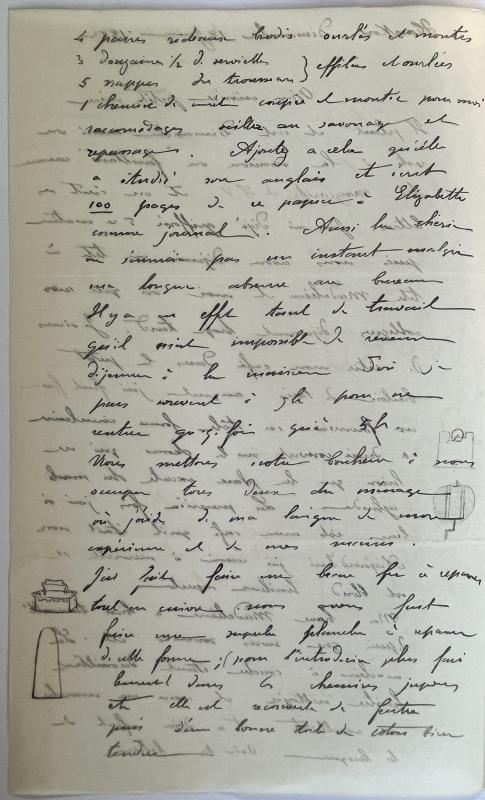 4 paires rideaux brodis ourlés et montés
3 douzaines 1/2 de serviettes
5 nappes du trousseau } effilées et ourlées
1 chemise de coupée et montée pour moi
raccomodages au savonnage et
repassages. Ajoutez a cela qu'elle
a étudié son anglais et écrit
100 pages de ce papier à Elizabeth
comme journal. Aussi la chérie
ne s'ennuie pas un instant malgré
ma longue absence au bureau
Il y a en effet tant de travail
qu'il m'est impossible de revenir
déjeuner à la maison. Je
pars souvent à pour ne
rentrer qu'à
Nous mettons notre bonheur à nous
occuper tous deux du ménage
où jouis de ma langue de mon
expérience et de mes mains.
J'ai fait faire un beau fer à repasser
tout en cuivre, nous avons fait
faire une planche à repasser
de cette forme; (pour l'introduire plus faci
lement dans les chemises, jupons
etc elle est recouverte de feutre
puis d'une bonne toile de coton bien
tendue